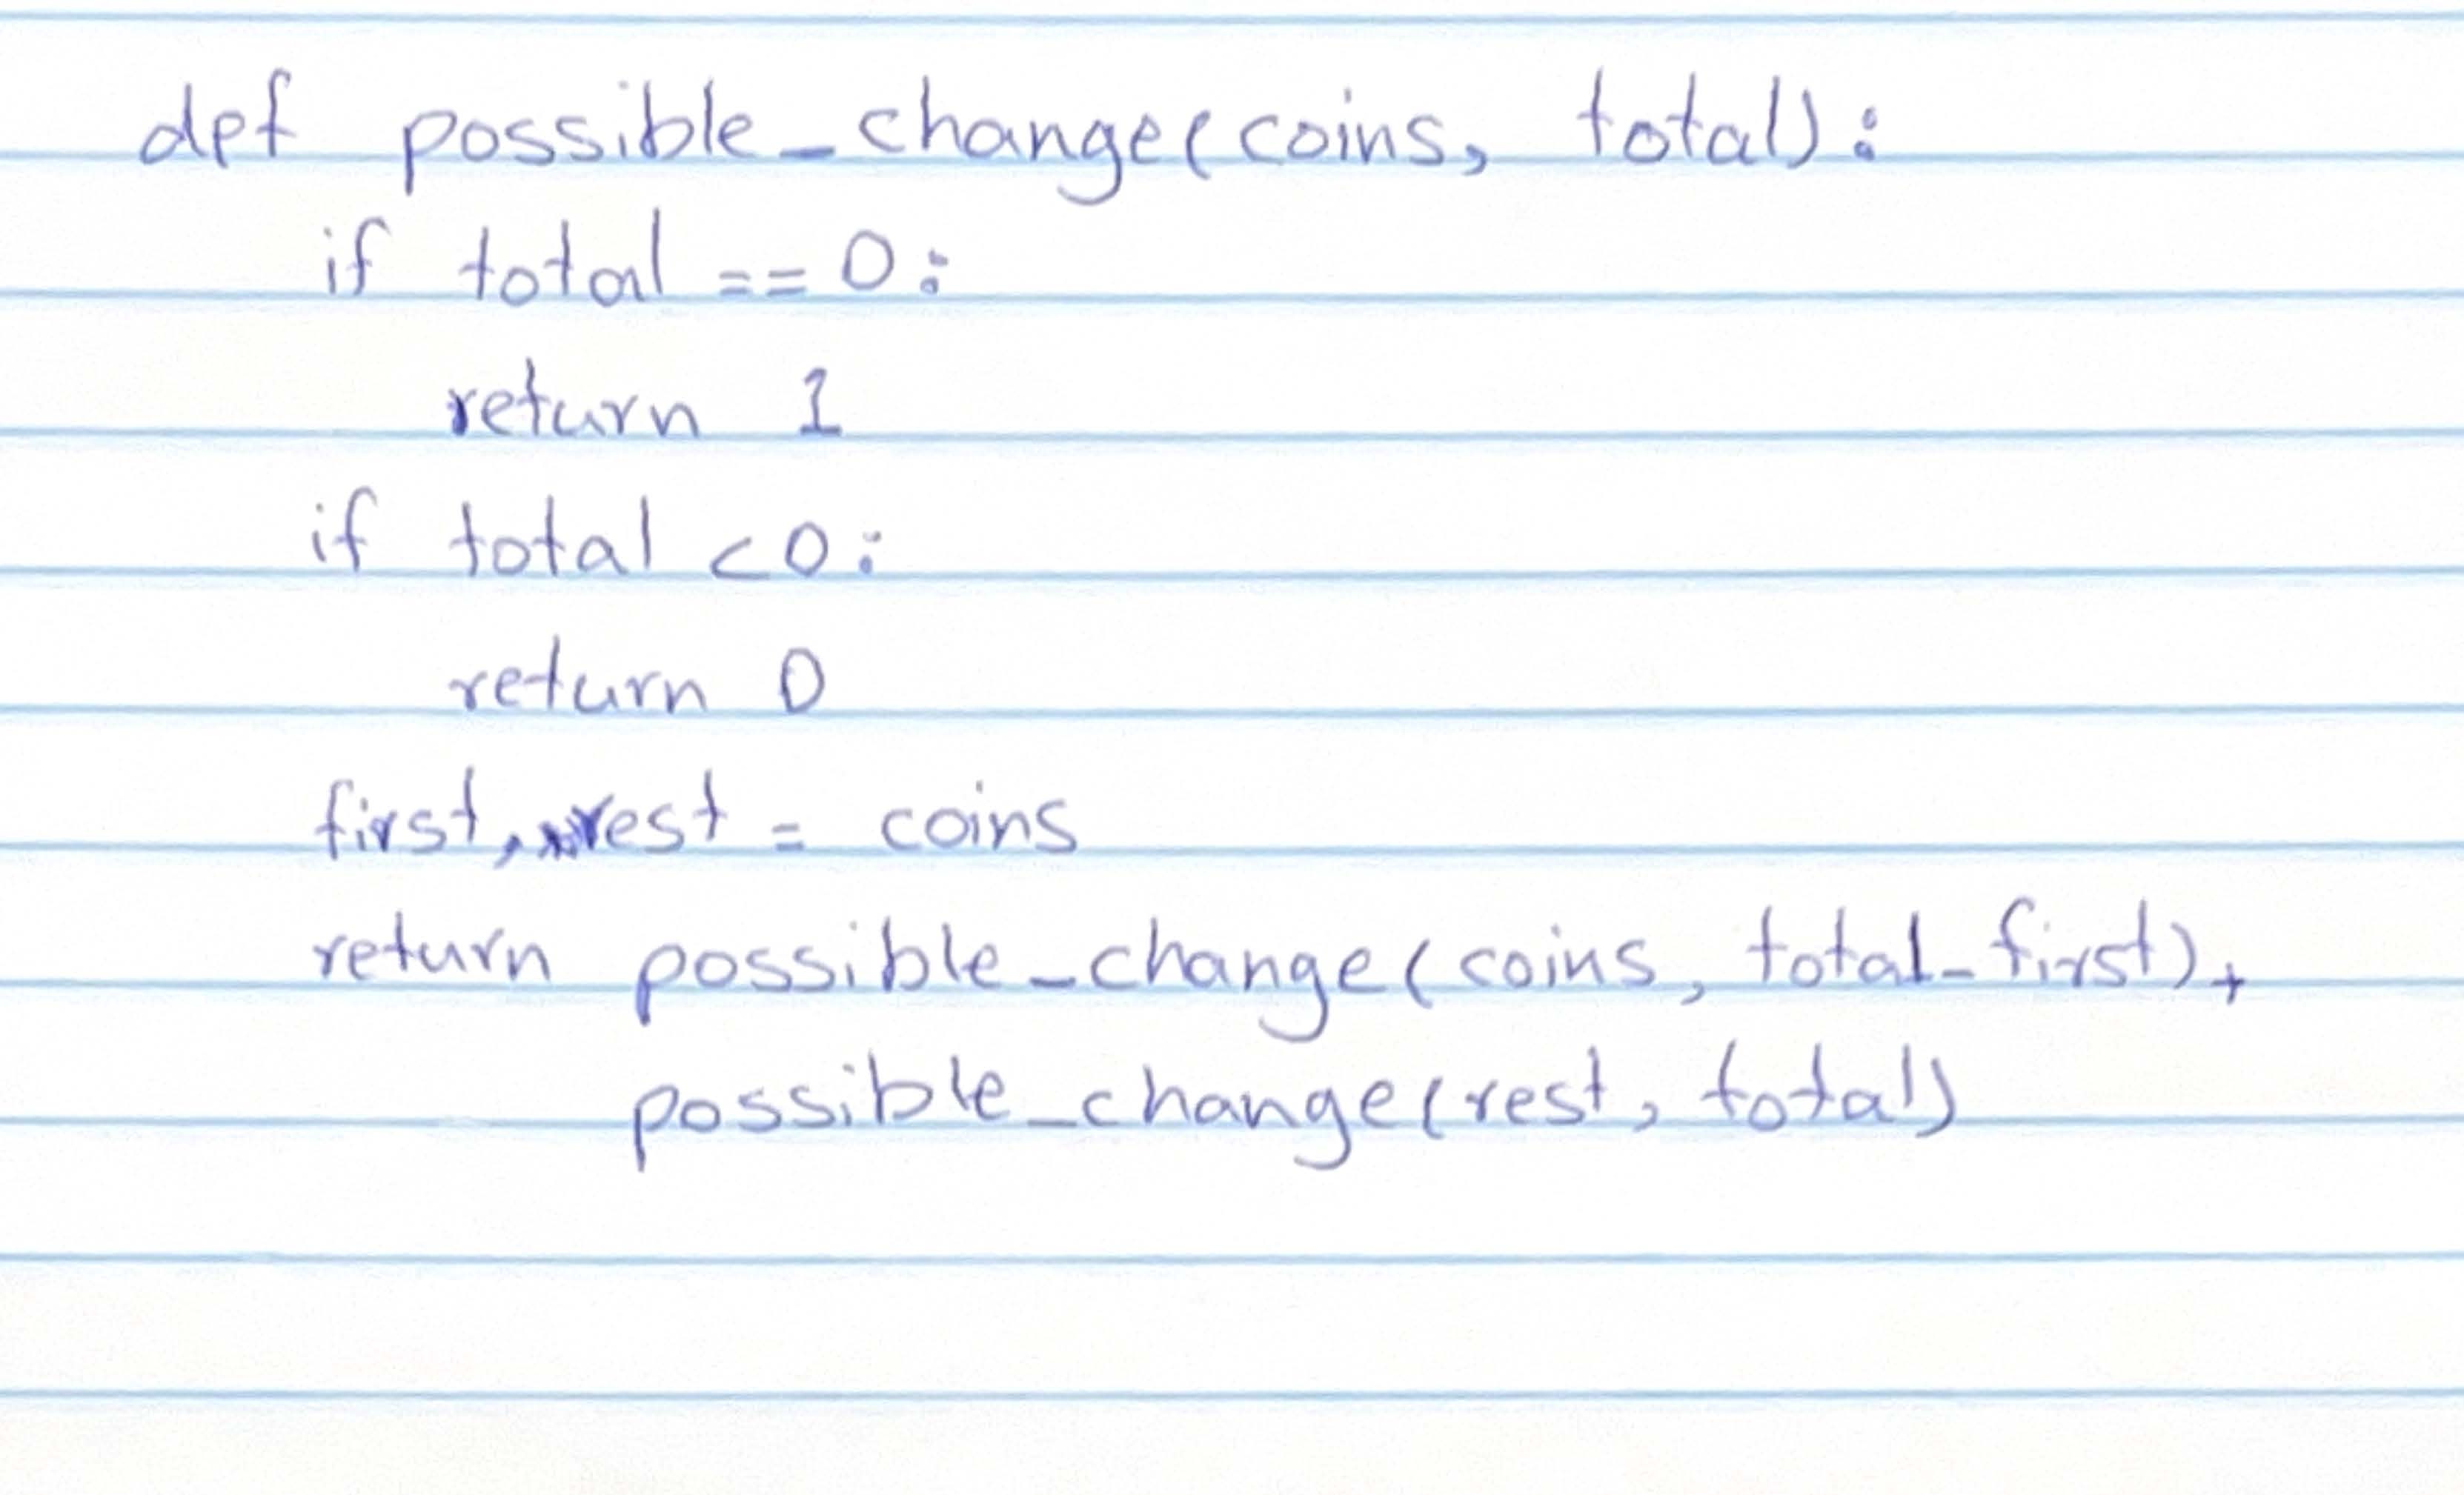 def possible_change(coins, total):
if total == 0:
return 1
if total <0:
return 0
first, rest = coins
return possible_change(coins, total-first)+
possible_change(rest, total)